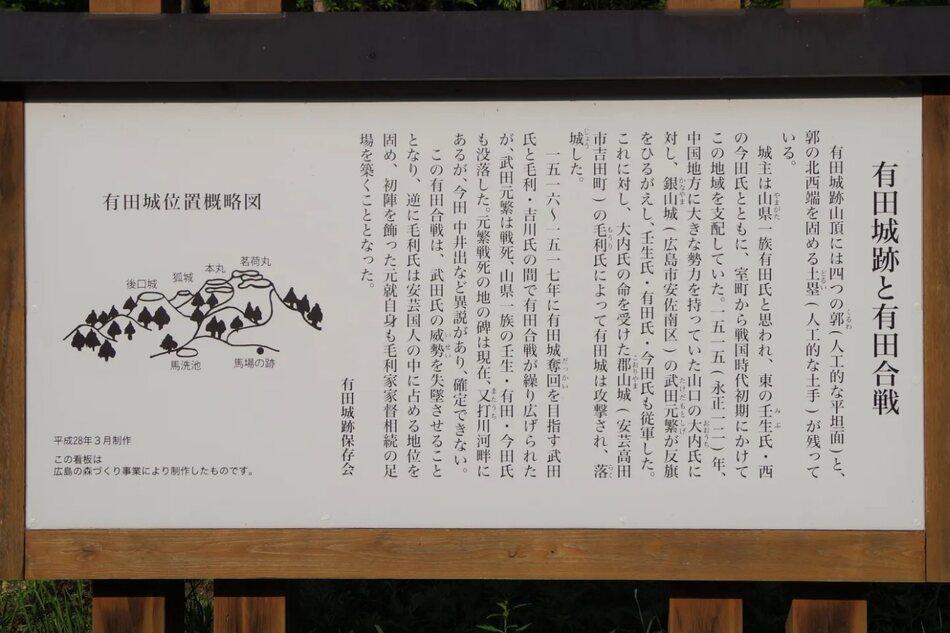 有田城跡と有田合戦
有田城跡山頂には四つの郭（人工的な平坦面）と、
郭の北西端を固める土塁（人工的な土手）が残って
いる。
城主は山県一族有田氏と思われ、東の壬生氏・西
の今田氏とともに、室町から戦国時代初期にかけて
この地域を支配していた。一五一五（永正一二）年、
中国地方に大きな勢力を持っていた山口の大内氏に
対し、銀山城（広島市安佐南区）の武田元繁が反旗
をひるがえし、壬生氏・有田氏・今田氏も従軍した。
これに対し、大内氏の命を受けた郡山城（安芸高田
市吉田町）の毛利氏によって有田城は攻撃され、落
城した。
一五一六～一五一七年に有田城奪回を目指す武田
氏と毛利・吉川氏の間で有田合戦が繰り広げられた
が、武田元繁は戦死、山県一族の壬生・有田・今田氏
も没落した。元繁戦死の地の碑は現在、又打川河畔に
あるが、今田 中井出など異説があり、確定できない。
この有田合戦は、武田氏の威勢を失墜させること
となり、逆に毛利氏は安芸国人の中に占める地位を
固め、初陣を飾った元就自身も毛利家家督相続の足
場を築くこととなった。
有田城跡保存会
有田城位置概略図
茗荷丸
本丸
狐城
後口城
馬洗池
馬場の跡
平成28年３月制作
この看板は
広島の森づくり事業により制作したものです。